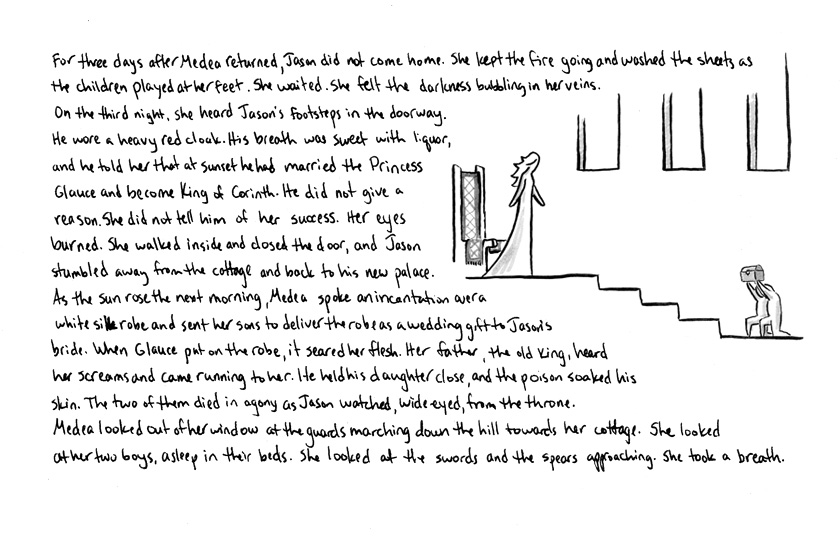 For three days after Medea returned, Jason did not come home. She kept the fire going and washed the sheets as
the children played at her feet. She waited. She felt the darkness bubbling in her veins.
On the third night, she heard Jason's footsteps in the doorway.
He wore a heavy red cloak. His breath was sweet with liquor,
and he told her that at sunset he had married the Princess
Glauce and become King of Corinth. He did not give a
reason. She did not tell him of her success. Her eyes
burned. She walked inside and closed the door, and Jason
stumbled away from the cottage and back to his new palace.
As the sun rose the next morning, Medea spoke an incantation over a
white silk robe and sent her sons to deliver the robe as a wedding gift to Jason's
bride. When Glauce put on the robe, it seared her flesh. Her father, the old King, heard
her screams and came running to her. He held his daughter close, and the poison soaked his
skin. The two of them died in agony as Jason watched, wide-eyed, from the throne.
Medea looked out of her window at the guards marching down the hill towards her cottage. She looked
at her two boys, asleep in their beds. She looked at the swords and the spears approaching. She took a breath.